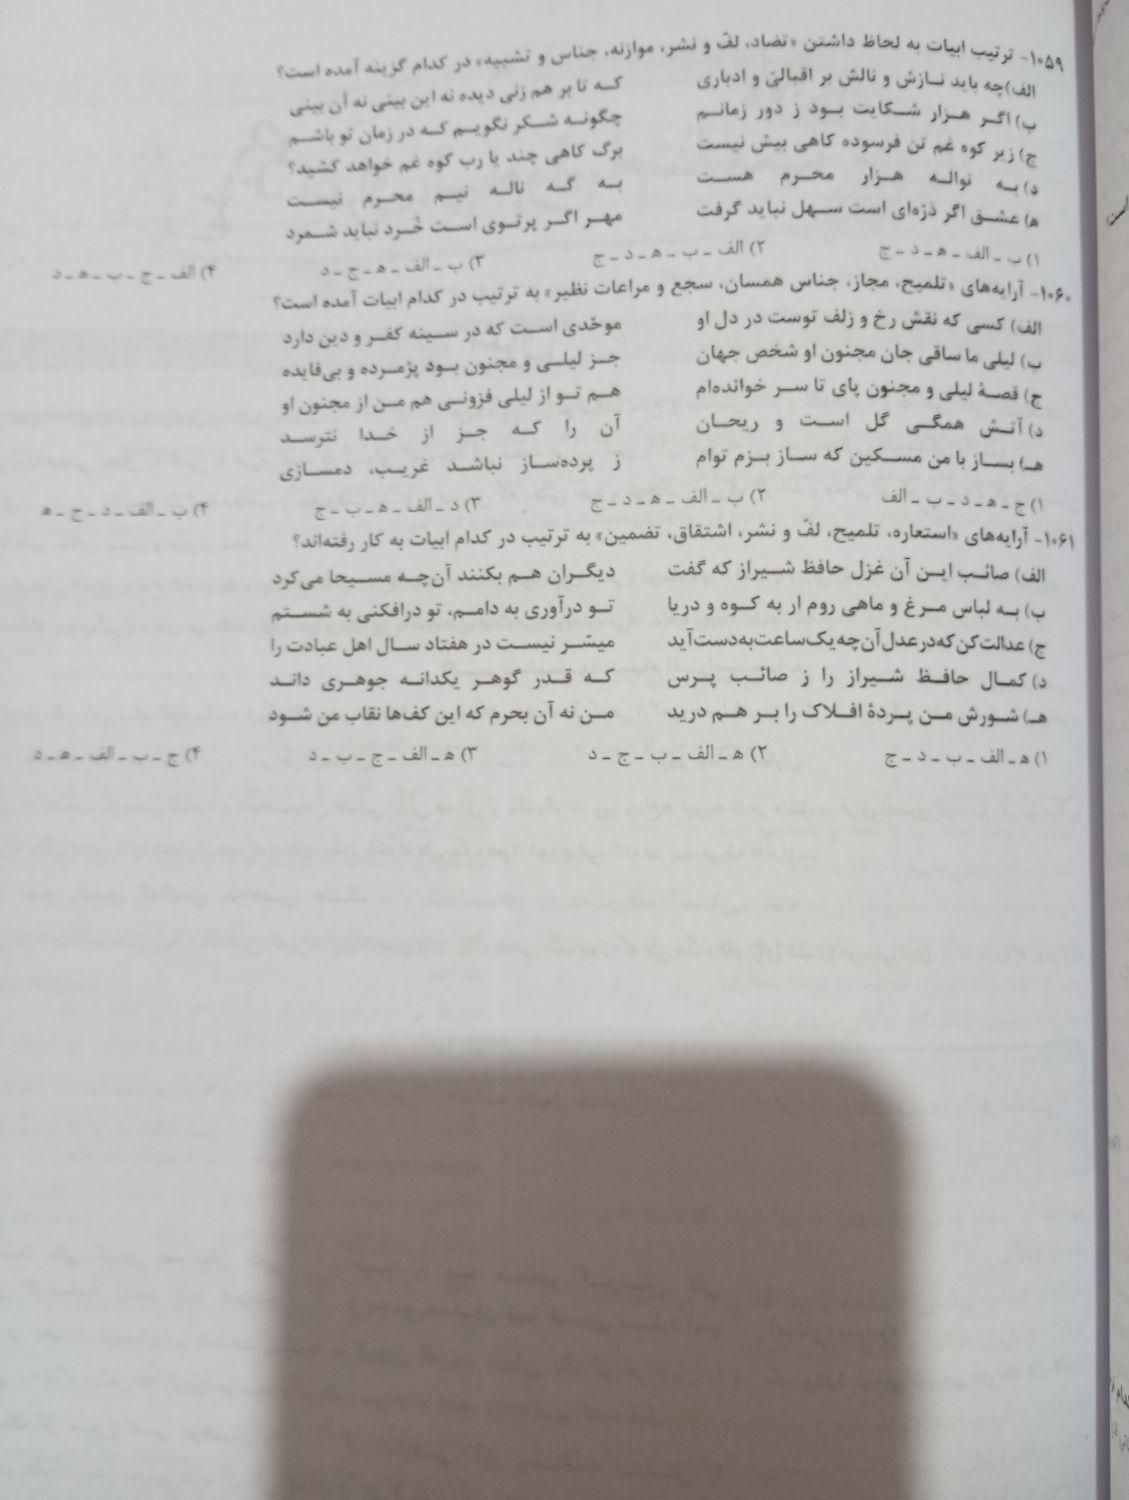 ۱۰۵۹- ترتیب ابیات به لحاظ داشتن «تضاد، لفّ و نشر، موازنه، جناس و تشبیه» در کدام گزینه آمده است؟
الف) چه باید نازش و نالش بر اقبالیّ و ادباری که تا بر هم زنی دیده نه این بینی نه آن بینی
ب) اگر هزار شکایت بود ز دور زمانم چگونه شکر نگویم که در زمان تو باشم
ج) زیر کوه غم تن فرسوده کاهی بیش نیست برگ کاهی چند یا رب کوه غم خواهد کشید؟
د) به نواله هزار محرم هست به گه ناله نیم محرم نیست
ه) عشق اگر ذرّه‌ای است سهل نباید گرفت مهر اگر پرتوی است خُرد نباید شمرد
۱) ب ـ الف ـ ه ـ د ـ ج ۲) الف ـ ب ـ ه ـ د ـ ج ۳) ب ـ الف ـ ه ـ ج ـ د ۴) الف ـ ج ـ ب ـ ه ـ د
۱۰۶۰- آرایه‌های «تلمیح، مجاز، جناس همسان، سجع و مراعات نظیر» به ترتیب در کدام ابیات آمده است؟
الف) کسی که نقش رخ و زلف توست در دل او موحّدی است که در سینه کفر و دین دارد
ب) لیلی ما ساقی جان مجنون او شخص جهان جز لیلی و مجنون بود پژمرده و بی‌فایده
ج) قصهٔ لیلی و مجنون پای تا سر خوانده‌ام هم تو از لیلی فزونی هم من از مجنون او
د) آتش همگی گل است و ریحان آن را که جز از خدا نترسد
هـ) بساز با من مسکین که ساز بزم توام ز پرده‌ساز نباشد غریب، دمسازی
۱) ج ـ ه ـ د ـ ب ـ الف ۲) ب ـ الف ـ ه ـ د ـ ج ۳) د ـ الف ـ ه ـ ب ـ ج ۴) ب ـ الف ـ د ـ ج ـ ه
۱۰۶۱- آرایه‌های «استعاره، تلمیح، لفّ و نشر، اشتقاق، تضمین» به ترتیب در کدام ابیات به کار رفته‌اند؟
الف) صائب این آن غزل حافظ شیراز که گفت دیگران هم بکنند آن‌چه مسیحا می‌کرد
ب) به لباس مرغ و ماهی روم ار به کوه و دریا تو درآوری به دامم، تو درافکنی به شستم
ج) عدالت کن که در عدل آن‌چه یک ساعت به دست آید میسّر نیست در هفتاد سال اهل عبادت را
د) کمال حافظ شیراز را ز صائب پرس که قدر گوهر یکدانه جوهری داند
هـ) شورش من پردهٔ افلاک را بر هم درید من نه آن بحرم که این کف‌ها نقاب من شود
۱) ه ـ الف ـ ب ـ د ـ ج ۲) ه ـ الف ـ ب ـ ج ـ د ۳) ه ـ الف ـ ج ـ ب ـ د ۴) ج ـ ب ـ الف ـ ه ـ د